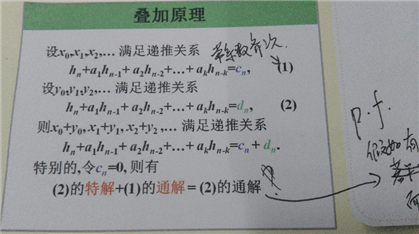 叠加原理
设x0,x1,x2,… 满足递推关系 常系数齐次
hn+a1hn-1+ a2hn-2+…+ akhn-k=cn, (1)
设y0,y1,y2,… 满足递推关系
hn+a1hn-1+ a2hn-2+…+ akhn-k=dn, (2)
则x0+y0,x1+y1,x2+y2 ,… 满足递推关系
hn+a1hn-1+ a2hn-2+…+ akhn-k=cn + dn.
特别的,令cn=0, 则有
(2)的特解+(1)的通解= (2)的通解
p.f.
假如有